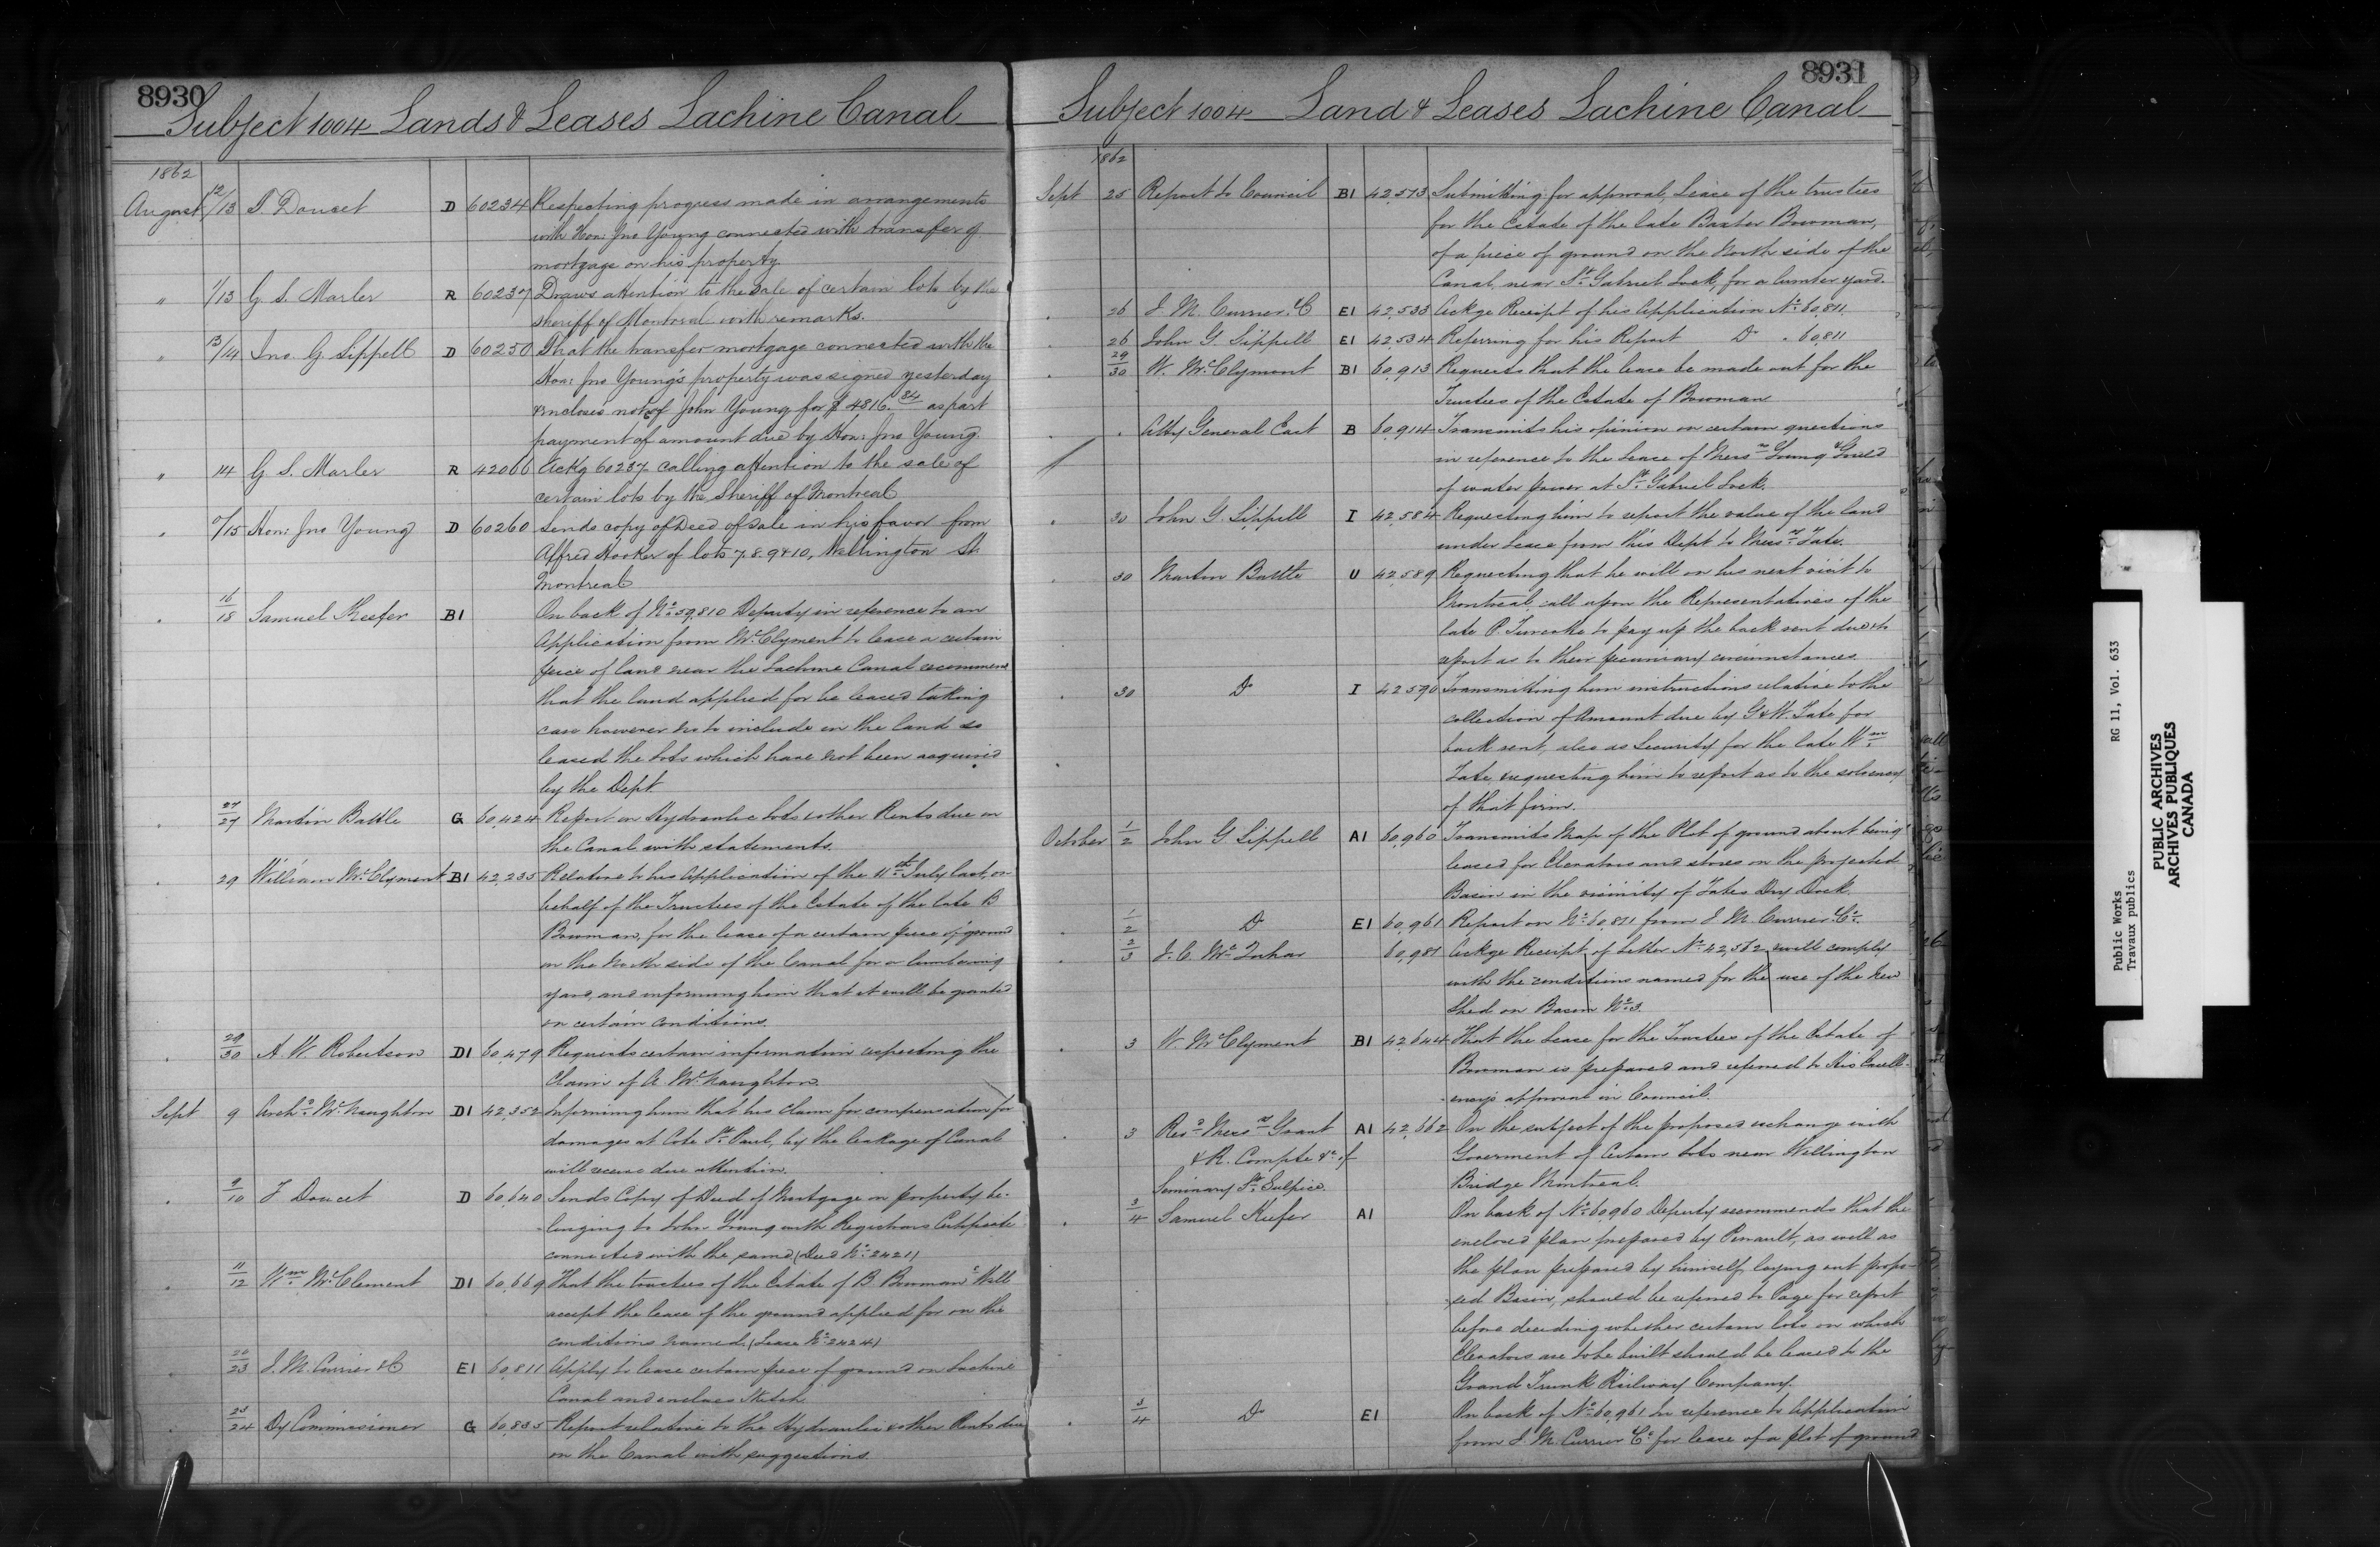 8930
Subject 1004 Lands & Leases Lachine Canal
1862
August 12/13 T. Doucet D 60234 Respecting progress made in arrangements
with Hon: Jno Young connected with transfer of
mortgage on his property
" 1/13 G. L. Marler R 60237 Draws attention to the sale of certain lots by the
sheriff of Montreal with remarks.
" 13/14 Jno. G. Sippell D 60250 That the transfer mortgage connected with the
Hon: Jno Young's property was signed yesterday
& incloses note of John Young for $ 4816.84 as part
payment of amount due by Hon: Jno Young.
" 14 G. L. Marler R 42066 Ackg 60237 calling attention to the sale of
certain lots by the Sheriff of Montreal
" /15 Hon: Jno Young D 60260 Sends copy of Deed of Sale in his favor from
Alfred Hooker of lots 7.8.9 & 10, Wellington St.
Montreal
" 16/18 Samuel Keefer B1 On back of No. 59,810 Deputy in reference to an
Application from McClyment to lease a certain
piece of land near the Lachine Canal recommend
that the land applied for be leased taking
care however not to include in the land so
leased the lots which have not been acquired
by the Dept.
" 27/27 Martin Battle G 60,424 Report on Hydraulic lots & other Rents due on
the Canal with statements.
" 29 William McClyment B1 42,235 Relative to his Application of the 11th July last, on
behalf of the Trustees of the Estate of the late B
Bowman, for the lease of a certain piece of ground
on the North side of the Canal for a lumbering
yard, and informing him that it will be granted
on certain conditions.
" 29/30 A. W. Robertson D1 60,479 Requests certain information respecting the
Claim of A. McNaughton.
Sept 9 Archd. McNaughton D1 42,352 Informing him that his claim for compensation for
damages at Cote St. Paul, by the leakage of Canal
will receive due attention.
" 9/10 T. Doucet D 60,640 Sends Copy of Deed of Mortgage on property be-
longing to John Young with Registrars Certificate
connected with the same (Deed No. 2421)
" 11/12 Wm. McClement D1 60,669 That the trustees of the Estate of B. Bowman Will
accept the lease of the ground applied for on the
conditions named (Lease No. 2424)
" 23 J. M. Currier & Co E1 60,811 Apply to lease certain piece of ground on Lachine
Canal and encloses Sketch
" 23/24 Dy Commissioner G 60,835 Report relative to the Hydraulic & other Rents due
on the Canal with suggestions.
8931
Subject 1004 Land & Leases Lachine Canal
1862
Sept 25 Report to Council B1 42,513 Submitting for approval, Lease of the trustees
for the Estate of the late Baxter Bowman,
of a piece of ground on the North side of the
Canal, near St. Gabriel Lock, for a lumber yard.
" 26 J. M. Currier & C E1 42,533 Ackge Receipt of his Application No. 60,811.
" 26 John G. Sippell E1 42,534 Referring for his Report Do . 60,811
" 29/30 W. McClyment B1 60,913 Requests that the lease be made out for the
Trustees of the Estate of Bowman
" . Atty General East B 60,914 Transmits his opinion on certain questions
in reference to the Lease of Messrs Young & Gould
of water power at St. Gabriel Lock.
" 30 John G. Sippell I 42,584 Requesting him to report the value of the land
under Lease from this Dept to Messrs Tate.
" 30 Martin Battle U 42,589 Requesting that he will on his next visit to
Montreal, call upon the Representatives of the
late P. Turcotte to pay up the back rent due & to
report as to their pecuniary circumstances.
" 30 Do I 42590 Transmitting him instructions relative to the
collection of Amount due by G & W. Tate for
back rent, also as Security for the late Wm.
Tate, requesting him to report as to the solvency
of that firm.
October 1/2 John G Sippell A1 60,960 Transmits Map of the Plot of ground about being
leased for Elevators and stores on the projected
Basin in the vicinity of Tates Dry Dock
" 1/2 Do E1 60,961 Report on No. 60,811 from J. M. Currier & Co.
" 2/3 J. C. 60,981 Ackge Receipt of Letter No. 42,572 & will comply
with the conditions named for the use of the New
Shed on Basin No. 3
" 3 W. McClyment B1 42,644 That the Lease for the Trustees of the Estate of
Bowman is prepared and referred to His Excell-
ency's approval in Council.
" 3 Revd. Messrs Grant A1 42,662 On the subject of the proposed exchange with
& R. Compte &c of Goverment of Certain lots near Wellington
Seminary St. Sulpice. Bridge Montreal.
" 3/4 Samuel Keefer A1 On back of No. 60,960 Deputy recommends that the
enclosed plan prepared by Perrault, as well as
the plan prepared by himself, laying out propo-
sed Basin, should be referred to Page for report
before deciding whether certain lots on which
Elevators are to be built should be leased to the
Grand Trunk Railway Company.
" 3/4 Do E1 On back of No. 60,961 In reference to Application
from J. M. Currier & Co. for lease of a plot of ground
Public Works RG 11, Vol. 633
Travaux publics
PUBLIC ARCHIVES
ARCHIVES PUBLIQUES
CANADA